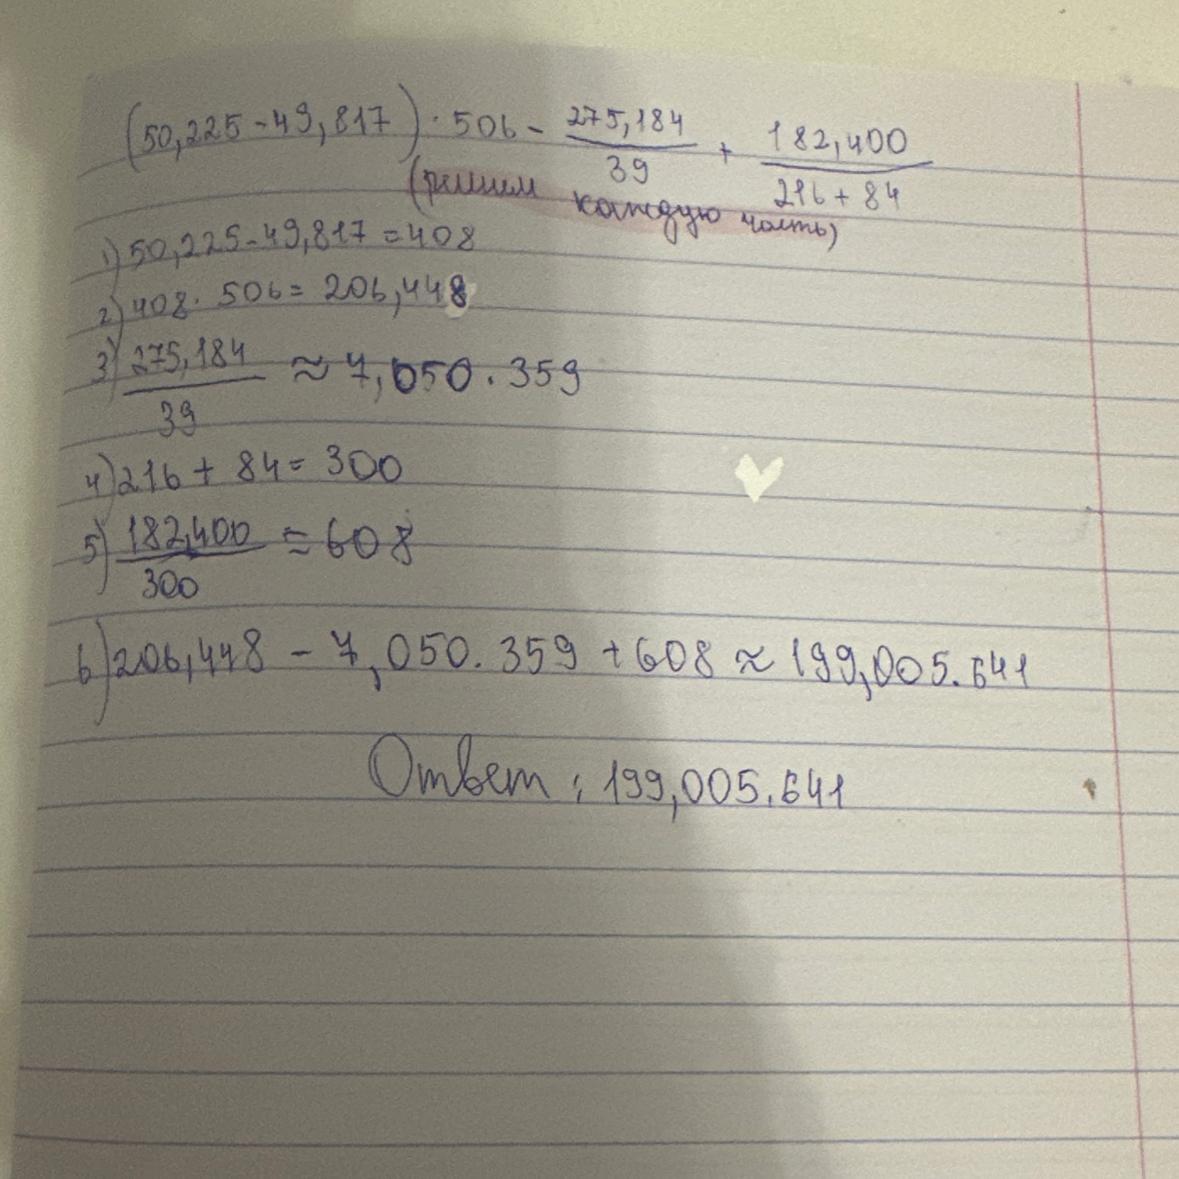 (50,225-49,817)·506 - 275,184/39 + 182,400/216+84
(решим каждую часть)
1) 50,225-49,817=408
2) 408·506=206,448
3) 275,184/39 ≈ 7,050.359
4) 216+84=300
5) 182,400/300 = 608
6) 206,448 - 7,050.359 + 608 ≈ 199,005.641
Ответ: 199,005.641